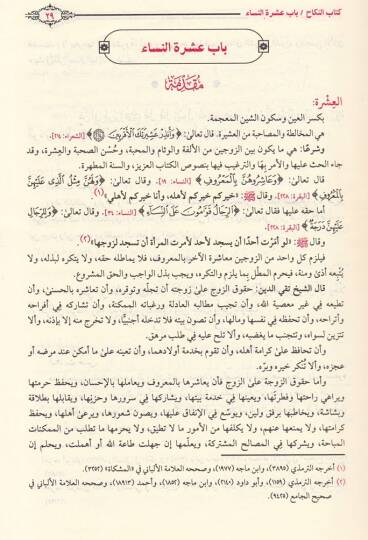 كتاب النكاح / باب عشرة النساء
٢٩
باب عشرة النساء
مقدمة
العِشْرة:
بكسر العين وسكون الشين المعجمة.
هي المخالطة والمصاحبة من العشيرة. قال تعالى: ﴿وَأَنذِرْ عَشِيرَتَكَ الْأَقْرَبِينَ﴾ [الشعراء: ٢١٤].
وشرعًا: هي ما يكون بين الزوجين من الألفة والوئام والمحبة، وحُسْن الصحبة والعِشرة، وقد
جاء الحث عليها والأمر بها والترغيب فيها بنصوص الكتاب العزيز، والسنة المطهرة.
قال تعالى: ﴿وَعَاشِرُوهُنَّ بِالْمَعْرُوفِ﴾ [النساء: ١٩]. وقال تعالى: ﴿وَلَهُنَّ مِثْلُ الَّذِي عَلَيْهِنَّ
بِالْمَعْرُوفِ﴾ [البقرة: ٢٢٨]. وقال ﷺ: «خيركم خيركم لأهله، وأنا خيركم لأهلي»(١)
أما حقه عليها فقال تعالى: ﴿الرِّجَالُ قَوَّامُونَ عَلَى النِّسَاءِ﴾ [النساء: ٣٤]. وقال تعالى: ﴿وَلِلرِّجَالِ
عَلَيْهِنَّ دَرَجَةٌ﴾ [البقرة: ٢٢٨].
وقال ﷺ: «لو أمَرْت أحدًا أن يسجد لأحد لأمرت المرأة أن تسجد لزوجها»(٢)
فيلزم كل واحد من الزوجين معاشرة الآخر بالمعروف، فلا يماطله حقه، ولا يتكره لبذله، ولا
يُتْبِعه أذىً ومنة، فيحرم المطْل بما يلزم والتكره، ويجب بذل الواجب والحق المشروع.
قال الشيخ تقي الدين: حقوق الزوج على زوجته أن تجلّه وتوقره، وأن تعاشره بالحسنىٰ، وأن
تطيعه في غير معصية الله، وأن تجيب مطالبه العادلة ورغباته الممكنة، وأن تشاركه في أفراحه
وأتراحه، وأن تحفظه في نفسها ومالها، وأن تصون بيته فلا تدخله أجنبيًّا، ولا تخرج منه إلا بإذنه، وألا
تتزين لسواه، وتتجنب ما يغضبه، وألا تلح عليه في طلب مرهق.
وأن تحافظ على كرامة أهله، وأن تقوم بخدمة أولادهما، وأن تعينه على ما أمكن عند مرضه أو
عجزه، وألا تُنكر خيره وبرّه.
وأما حقوق الزوجة على الزوج فأن يعاشرها بالمعروف ويعاملها بالإحسان، ويحفظ حرمتها
ويراعي راحتها وفطرتها، ويعينها في خدمة بيتها، ويشاركها في سرورها وحزنها، ويقابلها بطلاقة
وبشاشة، ويخاطبها برفق ولين، ويوسّع في الإنفاق عليها، ويصون شعورها، ويرعىٰ أهلها، ويحفظ
كرامتها، ولا يمنعها عنهم، ولا يكلفها من الأمور ما لا تطيق، ولا يحرمها ما تطلب من الممكنات
المباحة، ويشركها في المصالح المشتركة، ويعلّمها إن جهلت طاعة الله أو أهملت، ويحلم إن
(١) أخرجه الترمذي (٣٨٩٥)، وابن ماجه (١٩٧٧)، وصححه العلامة الألباني في «المشكاة» (٣٢٥٢).
(٢) أخرجه الترمذي (١١٥٩)، وأبو داود (٢١٤٠)، وابن ماجه (١٨٥٢)، وأحمد (١٨٩١٣)، وصححه العلامة الألباني في
صحيح الجامع (٩٤٢٥).